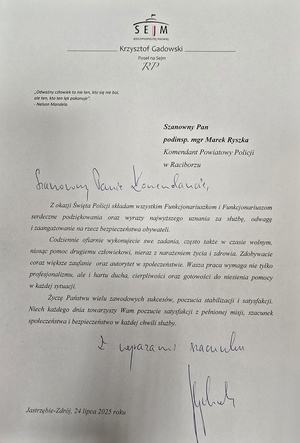 SEJM
RZECZYPOSPOLITEJ POLSKIEJ
Krzysztof Gadowski
Poseł na Sejm
RP
„Odważny człowiek to nie ten, kto się nie boi,
ale ten, kto ten lęk pokonuje".
- Nelson Mandela
Szanowny Pan
podinsp. mgr Marek Ryszka
Komendant Powiatowy Policji
w Raciborzu
Szanowny Panie Komendancie,
Z okazji Święta Policji składam wszystkim Funkcjonariuszkom i Funkcjonariuszom
serdeczne podziękowania oraz wyrazy najwyższego uznania za służbę, odwagę
i zaangażowanie na rzecz bezpieczeństwa obywateli.
Codziennie ofiarnie wykonujecie swe zadania, często także w czasie wolnym,
niosąc pomoc drugiemu człowiekowi, nieraz z narażeniem życia i zdrowia. Zdobywacie
coraz większe zaufanie oraz autorytet w społeczeństwie. Wasza praca wymaga nie tylko
profesjonalizmu, ale i hartu ducha, cierpliwości oraz gotowości do niesienia pomocy
w każdej sytuacji.
Życzę Państwu wielu zawodowych sukcesów, poczucia stabilizacji i satysfakcji.
Niech każdego dnia towarzyszy Wam poczucie satysfakcji z pełnionej misji, szacunek
społeczeństwa i bezpieczeństwo w każdej chwili służby.
Z wyrazami szacunku
Jastrzębie-Zdrój, 24 lipca 2025 roku